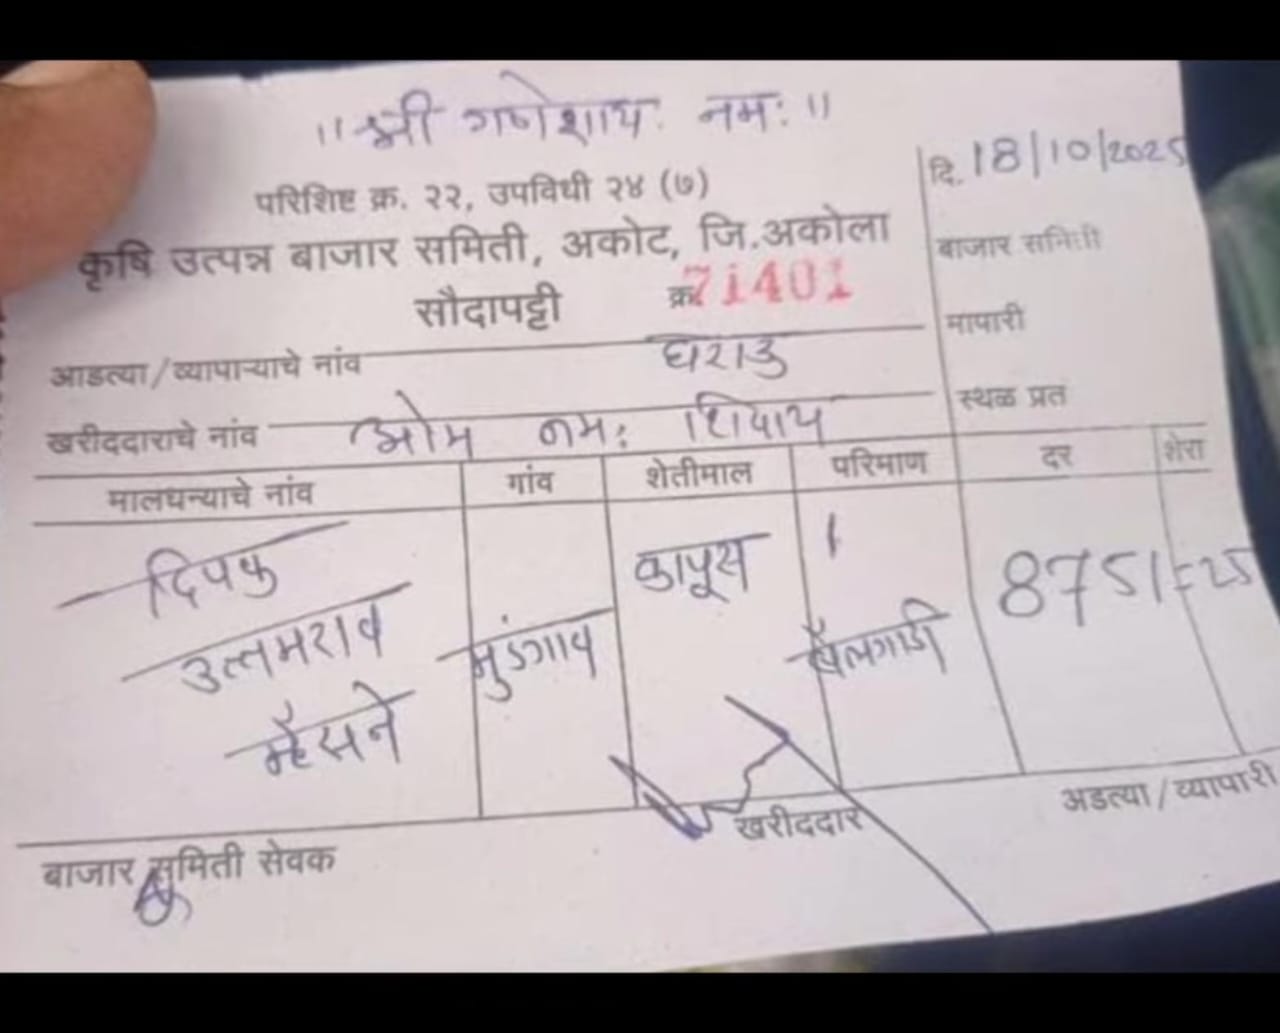 ।। श्री गणेशाय नमः ।।
परिशिष्ट क्र. २२, उपविधी २४ (७)
कृषि उत्पन्न बाजार समिती, अकोट, जि.अकोला
सौदापट्टी क्र. 71401
दि. 18/10/2025
बाजार समिती
मापारी
स्थळ प्रत
आडत्या/व्यापाऱ्याचे नांव
खरीददाराचे नांव ओम नमः शिवाय
मालधन्याचे नांव गांव शेतीमाल परिमाण दर शेरा
दिपक
उत्तमराव
म्हैसने
मुंडगाव
कापूस
1
बैलगाडी
8751=25
बाजार समिती सेवक
खरीददार
अडत्या/व्यापारी